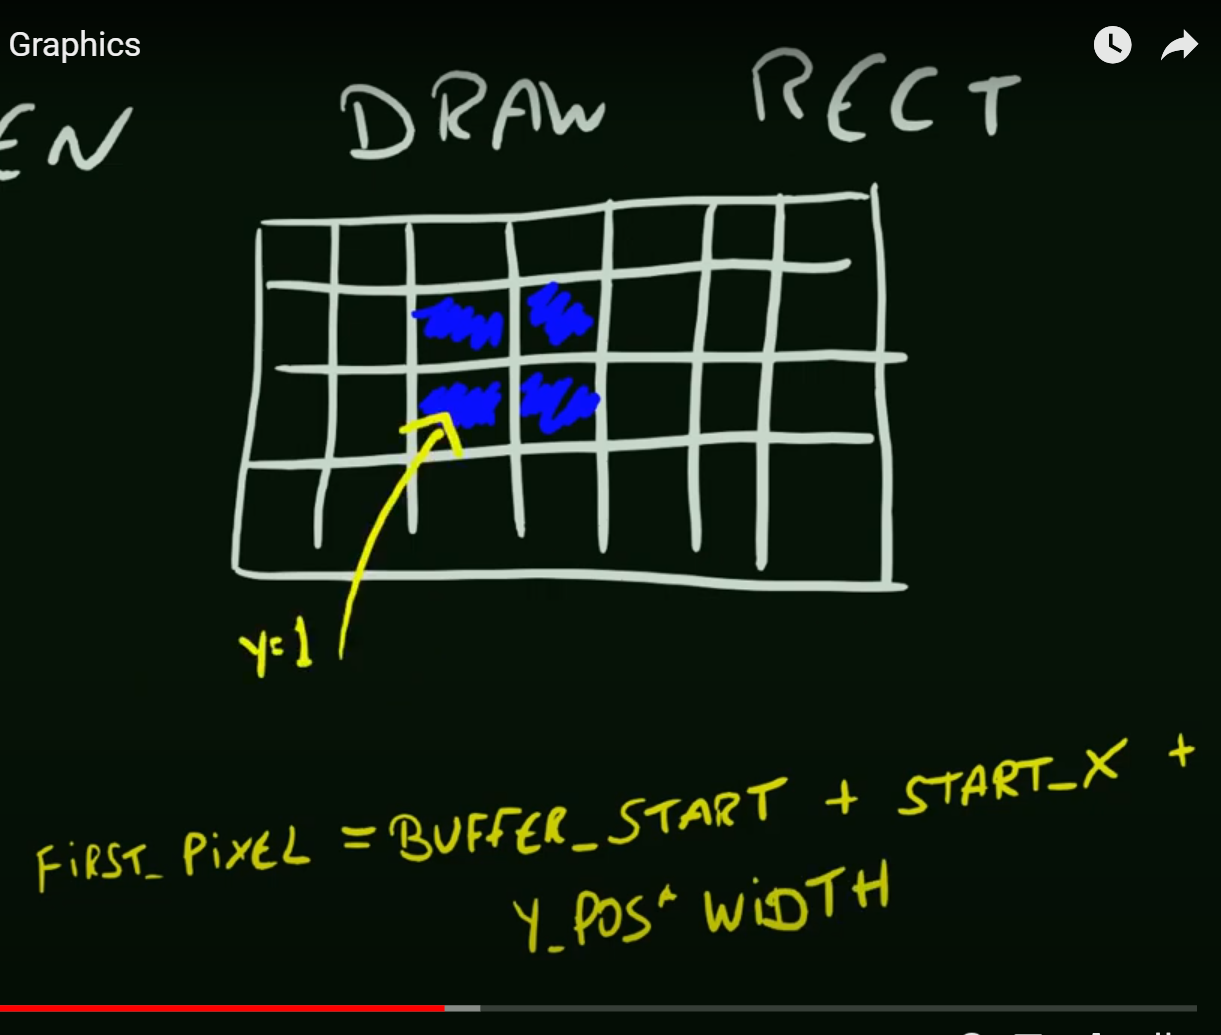 Graphics
EN DRAW RECT
y=1
FIRST_PIXEL = BUFFER_START + START_X +
Y_POS * WIDTH